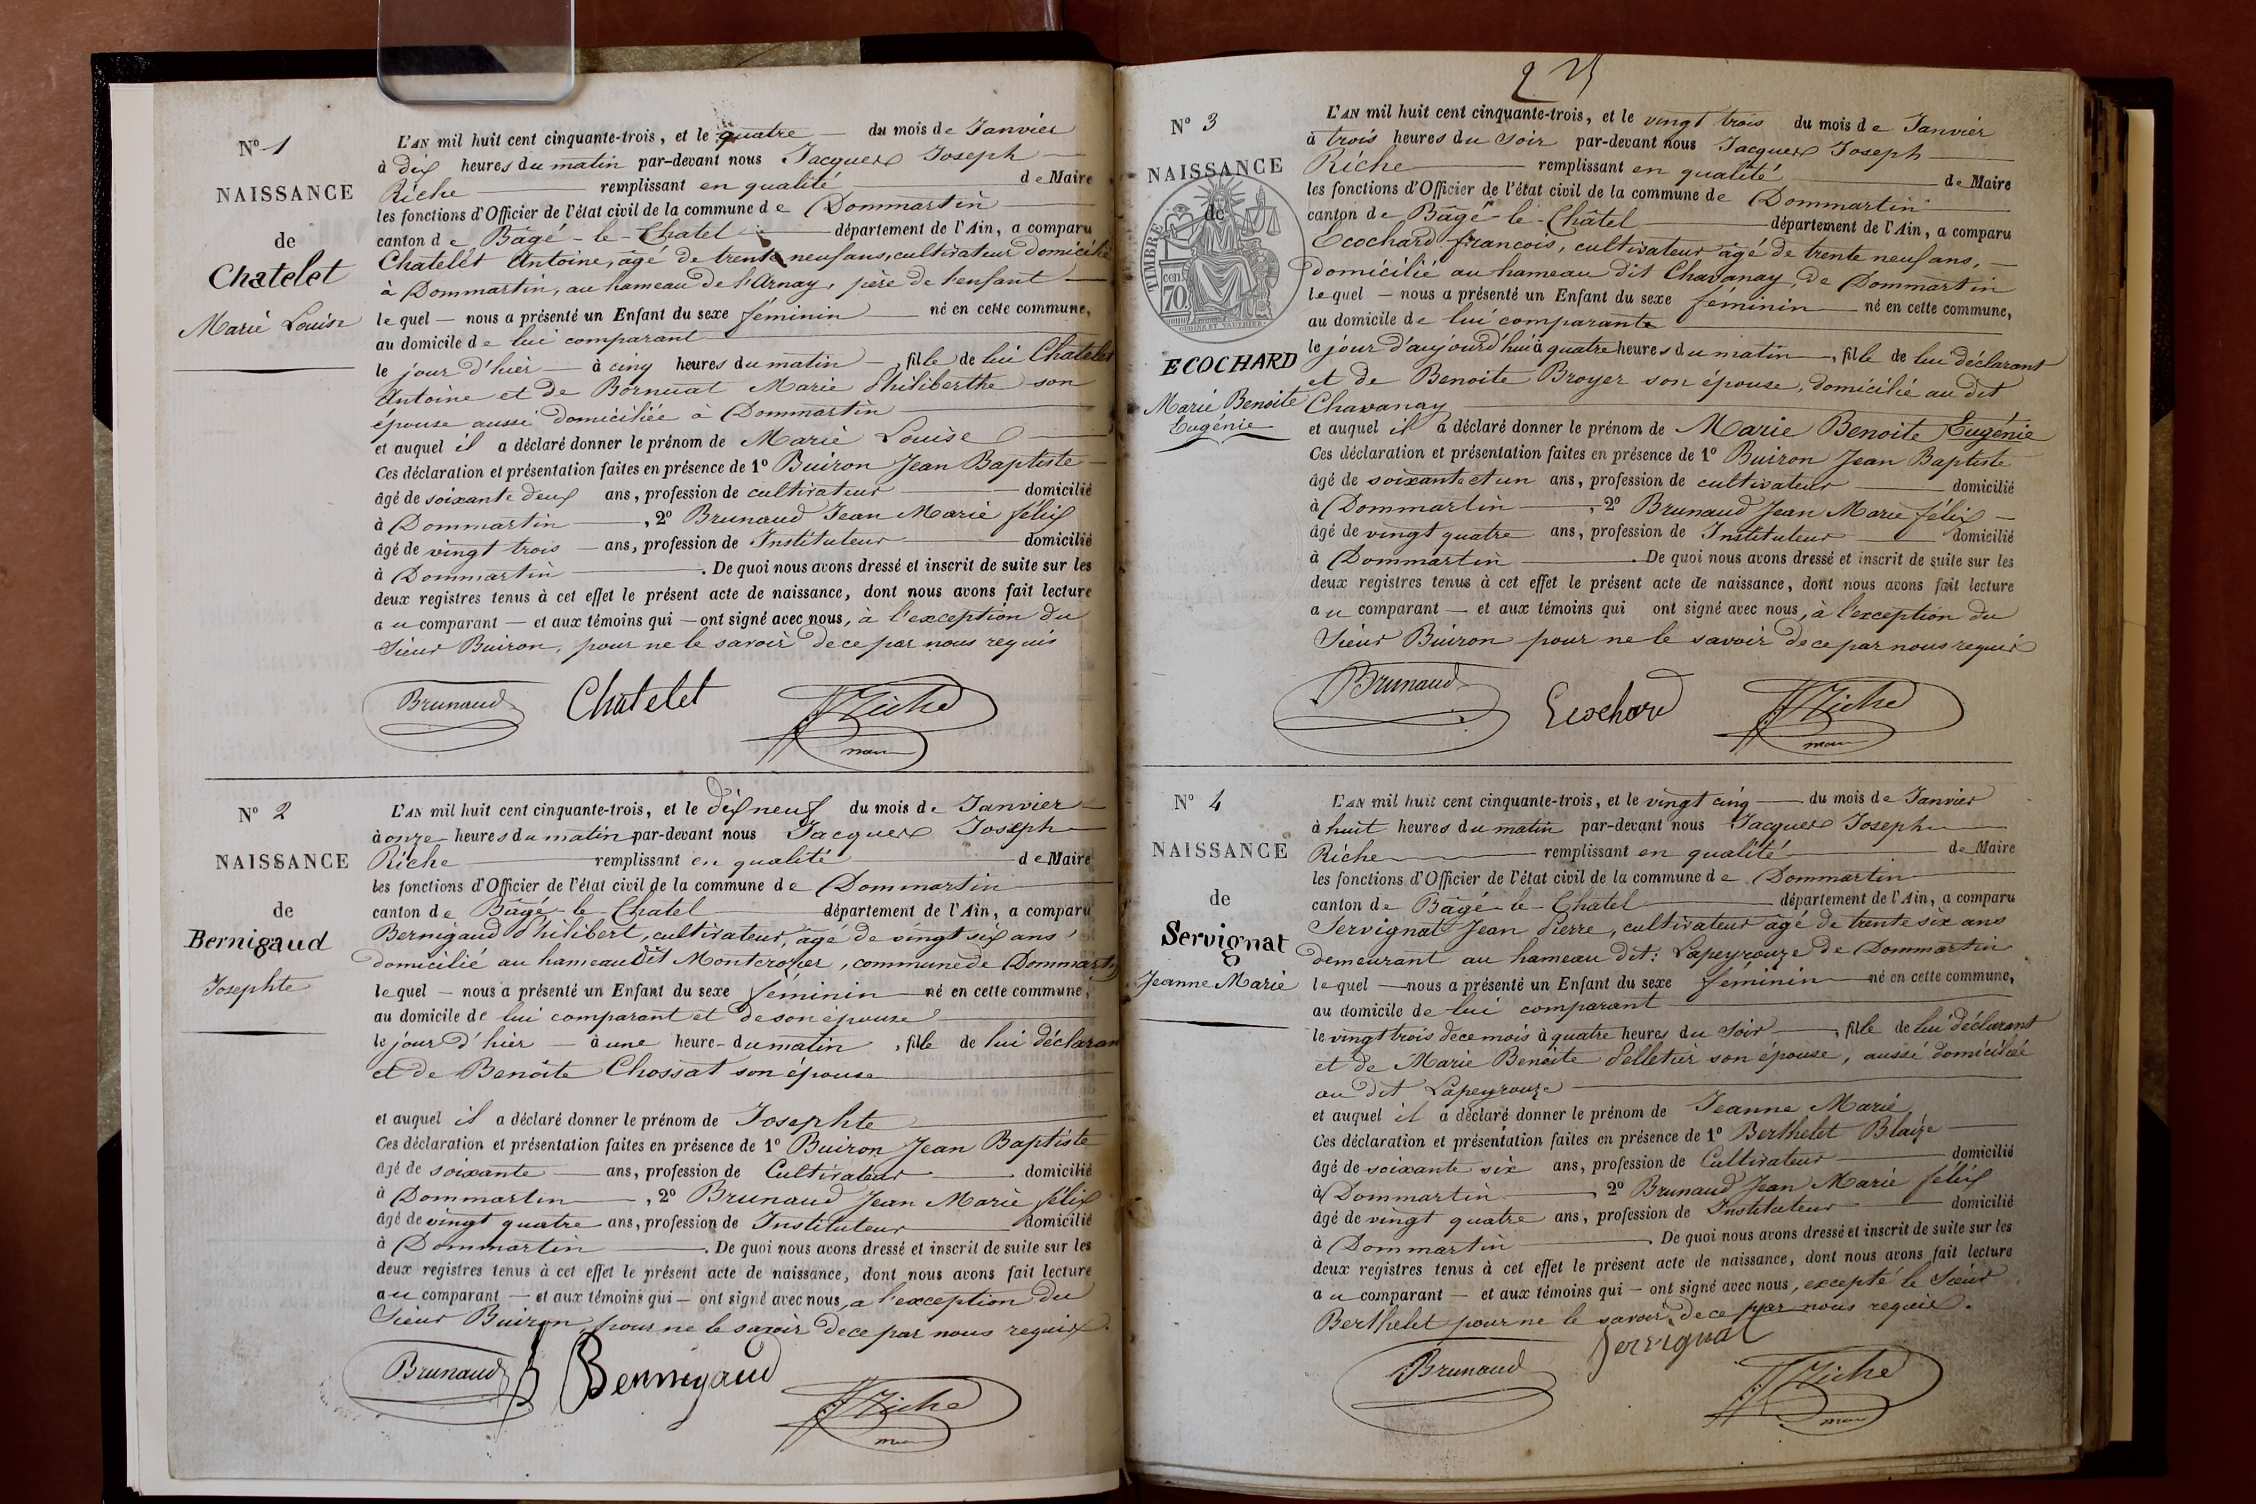 N° 1
NAISSANCE
de
Chatelet
Marie Louise
L'AN mil huit cent cinquante-trois, et le quatre du mois de Janvier
à dix heures du matin par-devant nous Jacques Joseph
Riche remplissant en qualité de Maire
les fonctions d'Officier de l'état civil de la commune de Dommartin
canton de Bâgé-le-Chatel département de l'Ain, a comparu
Chatelet Antoine, agé de trente neuf ans, cultivateur domicilié
à Dommartin, au hameau de l'Arnay, père de l'enfant
lequel — nous a présenté un Enfant du sexe féminin né en cette commune,
au domicile de lui comparant
le jour d'hier — à cinq heures du matin, fille de lui Chatelet
Antoine et de Bornuat Marie Philiberthe son
épouse aussi domiciliée à Dommartin
et auquel il a déclaré donner le prénom de Marie Louise
Ces déclaration et présentation faites en présence de 1° Buiron Jean Baptiste
âgé de soixante deux ans, profession de cultivateur domicilié
à Dommartin, 2° Brunaud Jean Marie félix
âgé de vingt trois — ans, profession de Instituteur domicilié
à Dommartin. De quoi nous avons dressé et inscrit de suite sur les
deux registres tenus à cet effet le présent acte de naissance, dont nous avons fait lecture
au comparant — et aux témoins qui — ont signé avec nous, à l'exception du
Sieur Buiron, pour ne le savoir de ce par nous requis
Brunaud Chatelet Riche
maire
N° 2
NAISSANCE
de
Bernigaud
Josephte
L'AN mil huit cent cinquante-trois, et le dix neuf du mois de Janvier
à onze heures du matin par-devant nous Jacques Joseph
Riche remplissant en qualité de Maire
les fonctions d'Officier de l'état civil de la commune de Dommartin
canton de Bâgé-le-Chatel département de l'Ain, a comparu
Bernigaud Philibert, cultivateur, âgé de vingt six ans
domicilié au hameau dit Montcrozier, commune de Dommartin
lequel — nous a présenté un Enfant du sexe féminin né en cette commune,
au domicile de lui comparant et de son épouse
le jour d'hier — à une heure du matin, fille de lui déclarant
et de Benoîte Chossat son épouse
et auquel il a déclaré donner le prénom de Josephte
Ces déclaration et présentation faites en présence de 1° Buiron Jean Baptiste
âgé de soixante ans, profession de Cultivateur domicilié
à Dommartin, 2° Brunaud Jean Marie félix
âgé de vingt quatre ans, profession de Instituteur domicilié
à Dommartin. De quoi nous avons dressé et inscrit de suite sur les
deux registres tenus à cet effet le présent acte de naissance, dont nous avons fait lecture
au comparant — et aux témoins qui — ont signé avec nous, a l'exception du
Sieur Buiron, pour ne le savoir de ce par nous requis.
Brunaud Bernigaud Riche
maire
N° 3
NAISSANCE
de
TIMBRE
70
ECOCHARD
Marie Benoite
Eugénie
L'AN mil huit cent cinquante-trois, et le vingt trois du mois de Janvier
à trois heures du soir par-devant nous Jacques Joseph
Riche remplissant en qualité de Maire
les fonctions d'Officier de l'état civil de la commune de Dommartin
canton de Bâgé-le-Châtel département de l'Ain, a comparu
Ecochard francois, cultivateur âgé de trente neuf ans,
domicilié au hameau dit Chavanay, de Dommartin
lequel — nous a présenté un Enfant du sexe féminin né en cette commune,
au domicile de lui comparante
le jour d'aujourd'hui à quatre heures du matin, fille de lui déclarant
et de Benoite Broyer son épouse, domicilié au dit
Chavanay
et auquel il a déclaré donner le prénom de Marie Benoite Eugénie
Ces déclaration et présentation faites en présence de 1° Buiron Jean Baptiste
âgé de soixante et un ans, profession de cultivateur domicilié
à Dommartin, 2° Brunaud Jean Marie félix
âgé de vingt quatre ans, profession de Instituteur domicilié
à Dommartin. De quoi nous avons dressé et inscrit de suite sur les
deux registres tenus à cet effet le présent acte de naissance, dont nous avons fait lecture
au comparant — et aux témoins qui ont signé avec nous, à l'exception du
Sieur Buiron pour ne le savoir de ce par nous requis
Brunaud Ecochard Riche
maire
N° 4
NAISSANCE
de
Servignat
Jeanne Marie
L'AN mil huit cent cinquante-trois, et le vingt cinq du mois de Janvier
à huit heures du matin par-devant nous Jacques Joseph
Riche remplissant en qualité de Maire
les fonctions d'Officier de l'état civil de la commune de Dommartin
canton de Bâgé-le-Chatel département de l'Ain, a comparu
Servignat Jean Pierre, cultivateur âgé de trente six ans
demeurant au hameau dit: Lapeyrouze de Dommartin
lequel — nous a présenté un Enfant du sexe féminin né en cette commune,
au domicile de lui comparant
le vingt trois de ce mois à quatre heures du soir, fille de lui déclarant
et de Marie Benoite Pelletier son épouse, aussi domiciliée
au dit Lapeyrouze
et auquel il a déclaré donner le prénom de Jeanne Marie
Ces déclaration et présentation faites en présence de 1° Berthelet Blaize
âgé de soixante six ans, profession de Cultivateur domicilié
à Dommartin 2° Brunaud Jean Marie félix
âgé de vingt quatre ans, profession de Instituteur domicilié
à Dommartin. De quoi nous avons dressé et inscrit de suite sur les
deux registres tenus à cet effet le présent acte de naissance, dont nous avons fait lecture
au comparant — et aux témoins qui — ont signé avec nous, excepté le Sieur
Berthelet pour ne le savoir de ce par nous requis.
Servignat
Brunaud Riche
maire